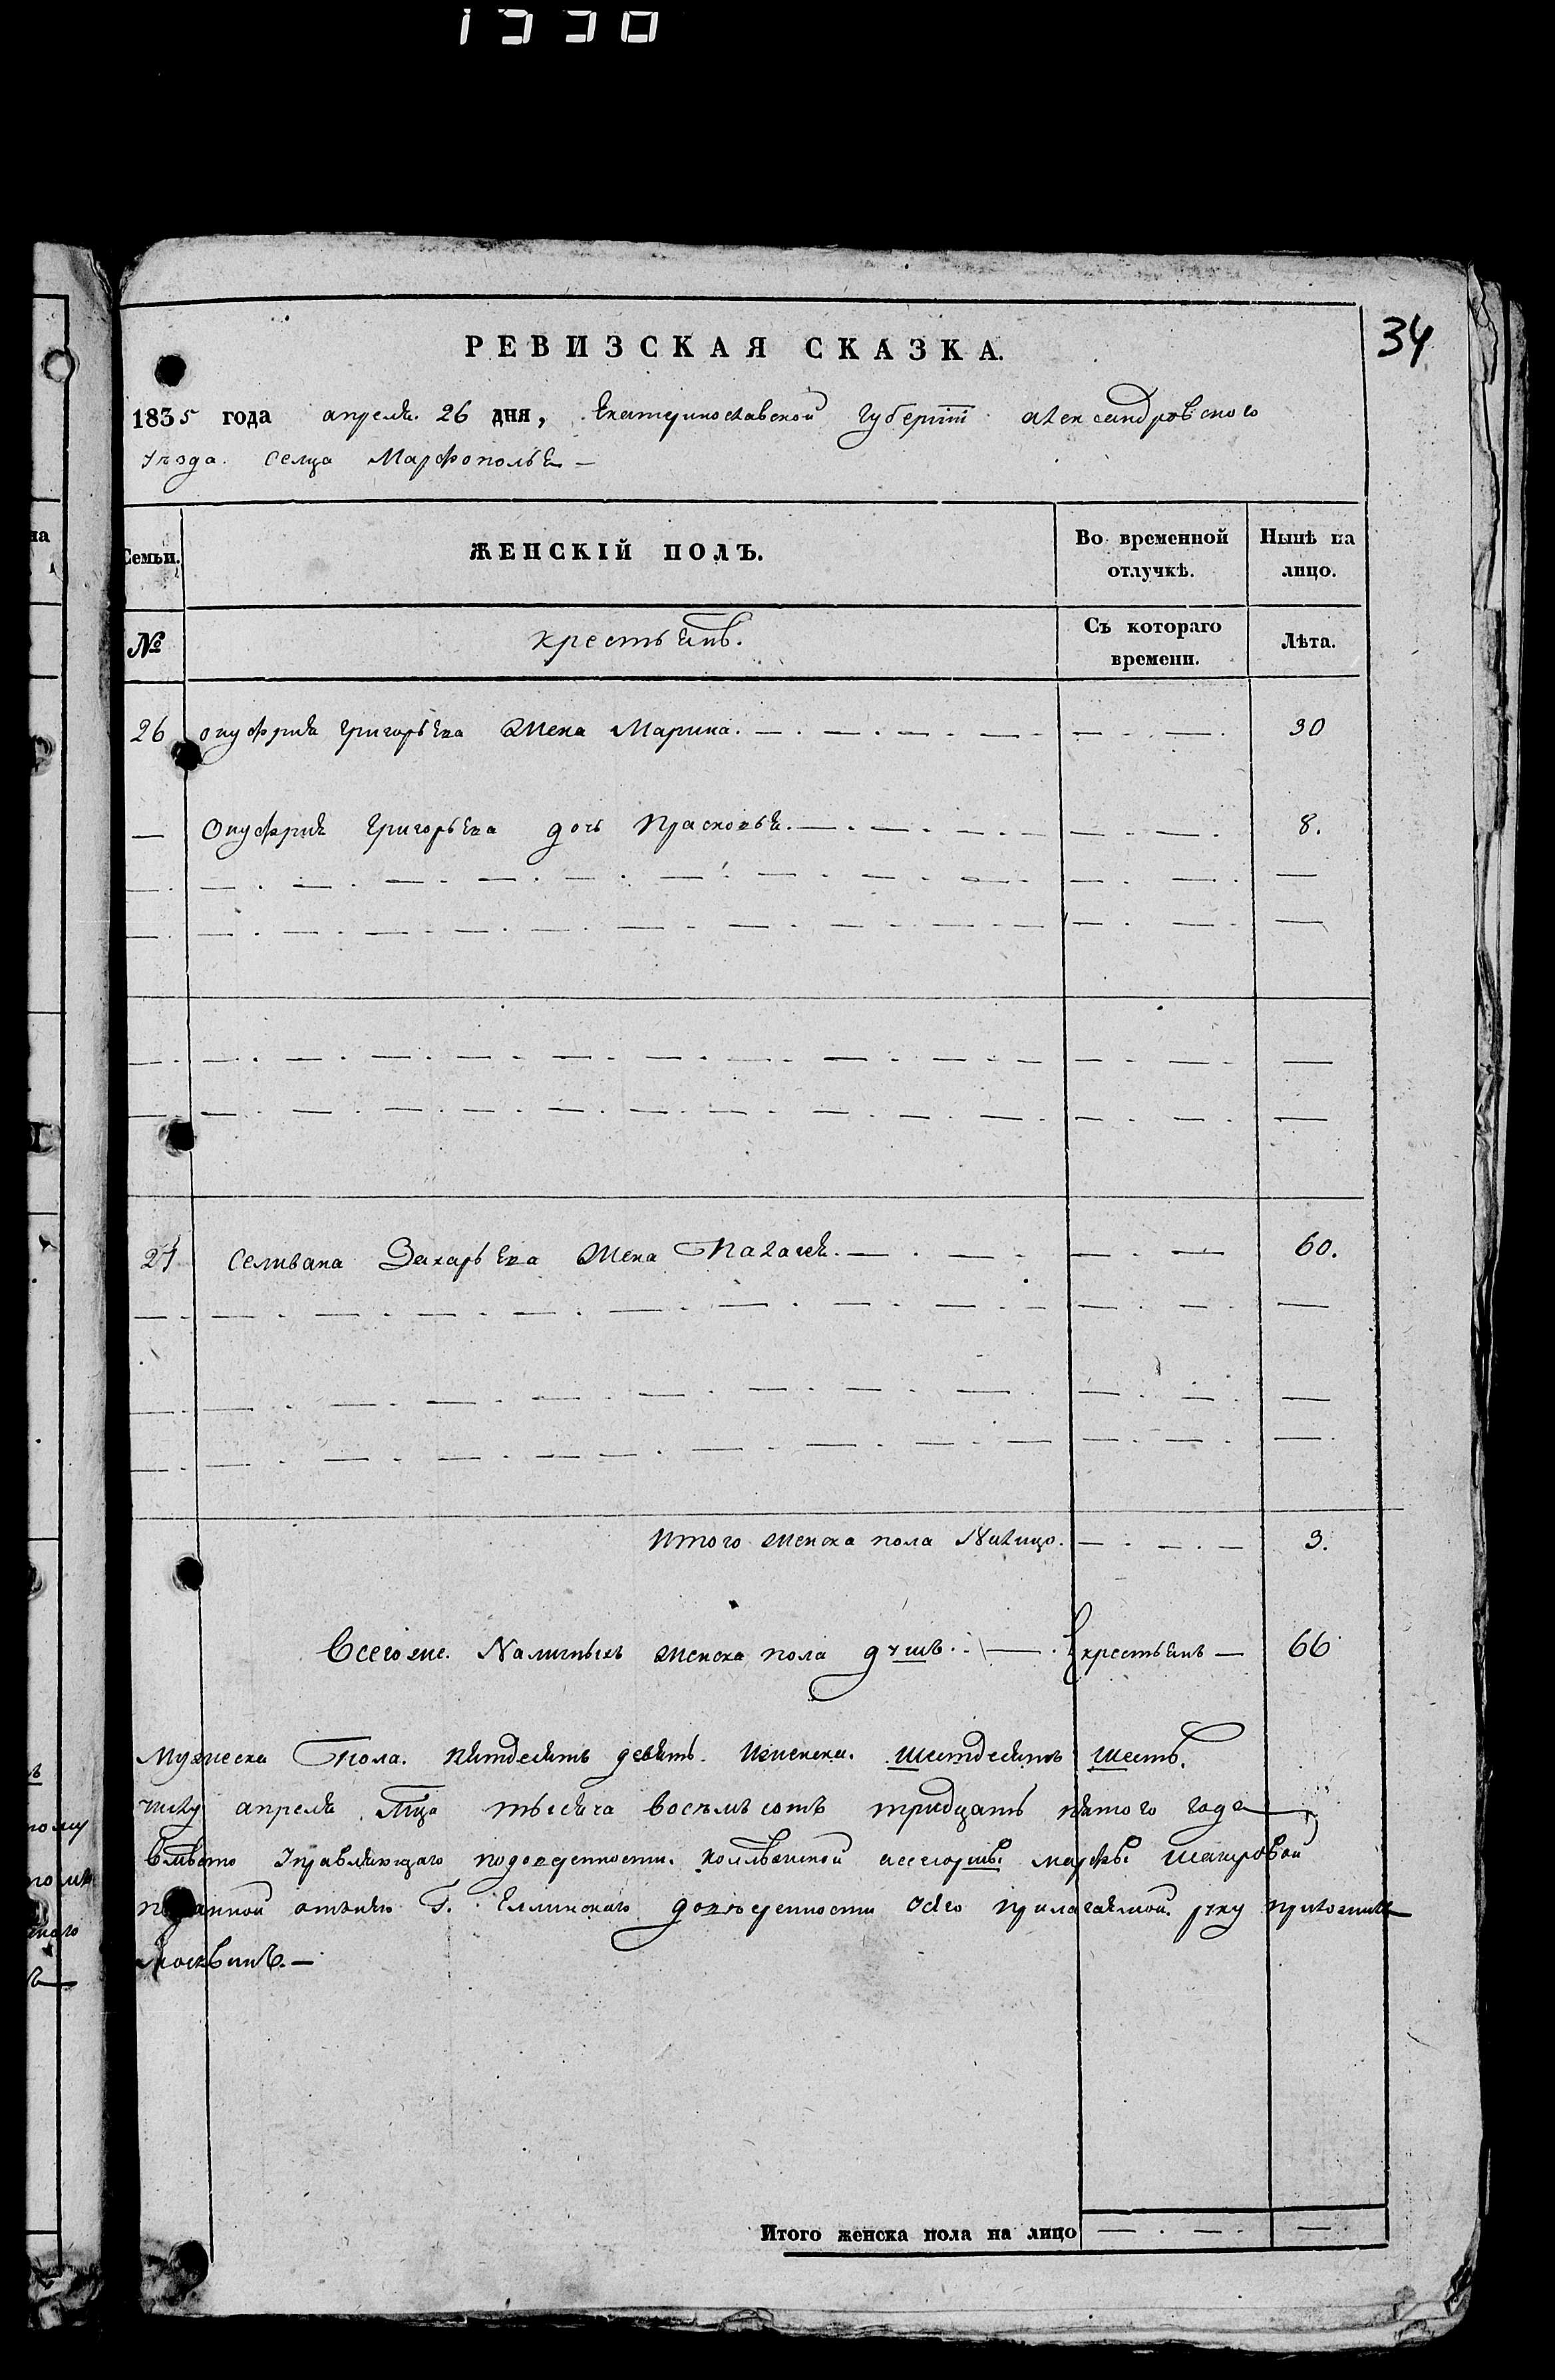 1330
34
РЕВИЗСКАЯ СКАЗКА.
1835 года апреля 26 дня, Екатеринославской губернiи александровского
уѣзда. селца Марфополья —
Семьи. ЖЕНСКІЙ ПОЛЪ. Во временной отлучкѣ. Нынѣ на лицо.
№ крестьянъ. Съ котораго времени. Лѣта.
26 онуфрия григорьева жена Марина. — . — . — . — 30
— Онуфрия григорьева дочь прасковья. — . — . — . — 8.
27 селивана Захарьева жена Палагея. — . — . — 60.
итого женска пола Налицо. — . — . — 3.
Всего же. Наличныхъ женска пола душъ. — . крестьянъ — 66
Мужеска Пола. пятдесятъ девять. женска. шестдесятъ шесть.
апреля дня тысяча восемь сотъ тридцать пятого года
вмѣсто управляющаго подоверенности. коллежской асесорши марфы шахировой
поданной отъ г. доверенности осего прилагаемой. руку приложилъ
москвинъ. —
Итого женска пола на лицо — . — . —